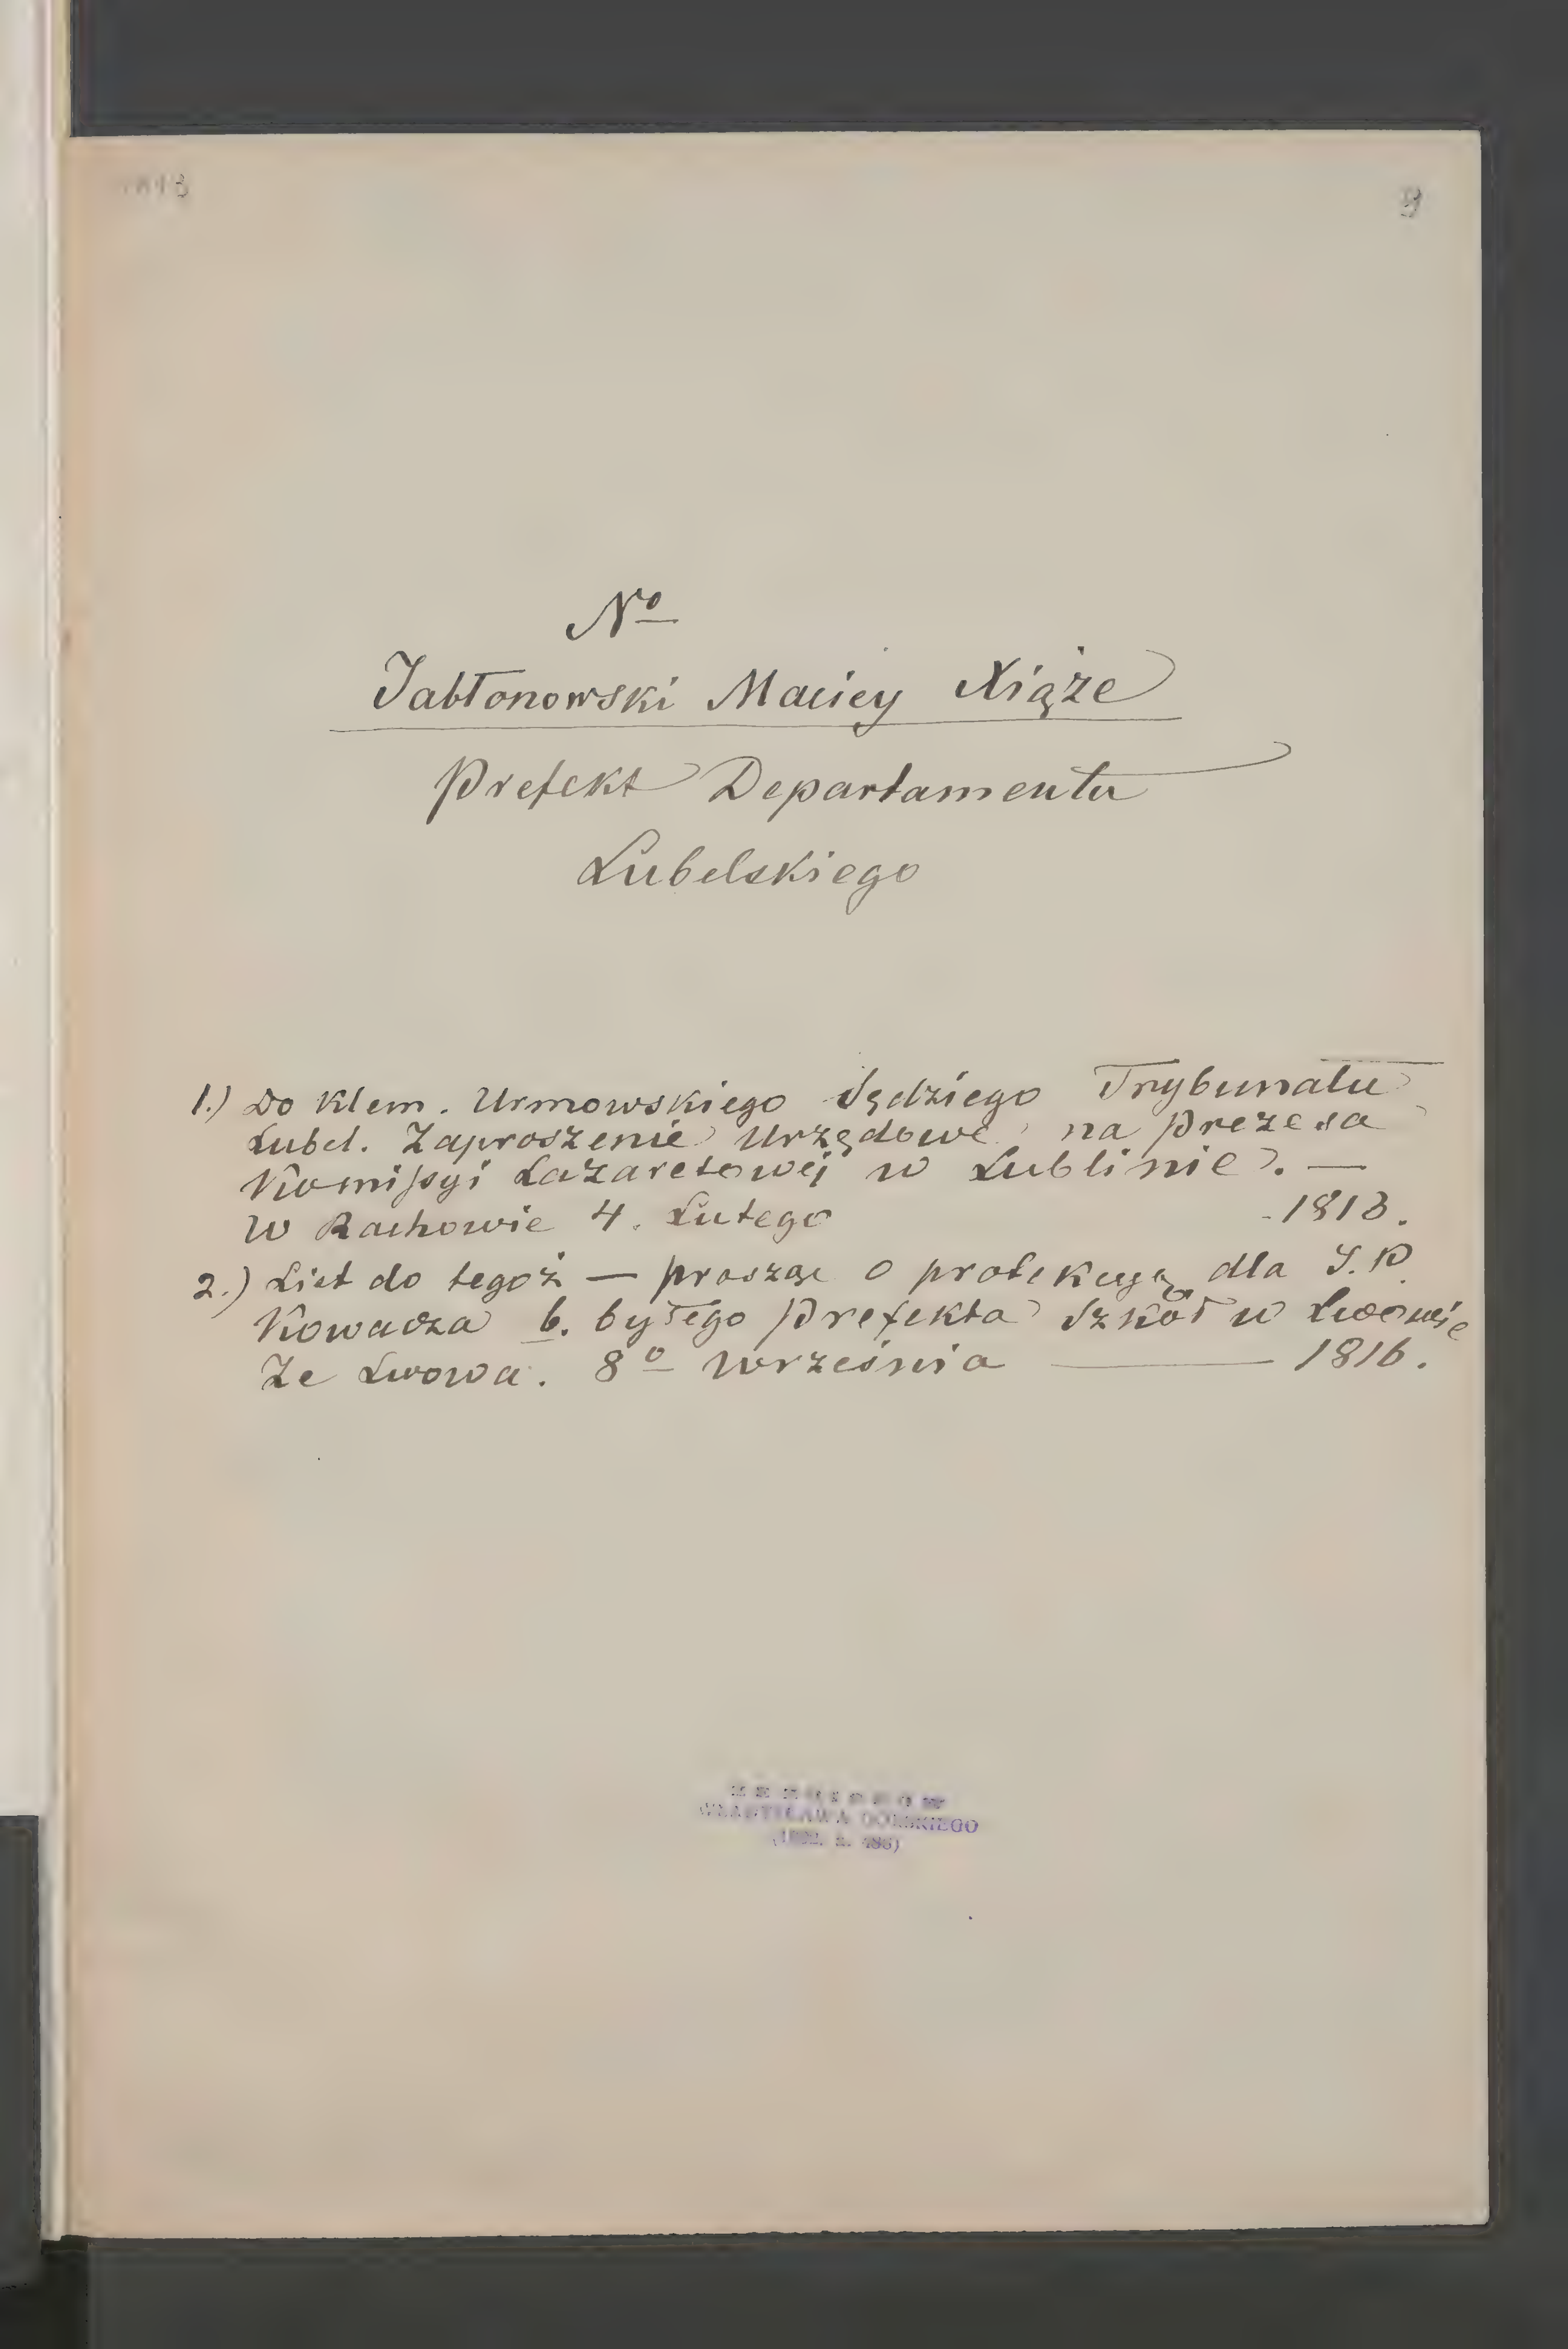 9
Nº
Jabłonowski Maciey Xiąże
Prefekt Departamentu
Lubelskiego
1.) Do Klem. Urmowskiego Sędziego Trybunału
Lubel. Zaproszenie Urzędowe na Prezesa
Komissyi Lazaretowéj w Lublinie. —
W Rachowie 4. Lutego 1813.
2.) List do tegoż — prosząc o protekcyą dla J. P.
Kowacza b. byłego Prefekta Szkół w Lwowie
Ze Lwowa. 8º Września — 1816.
GÓRSKIEGO